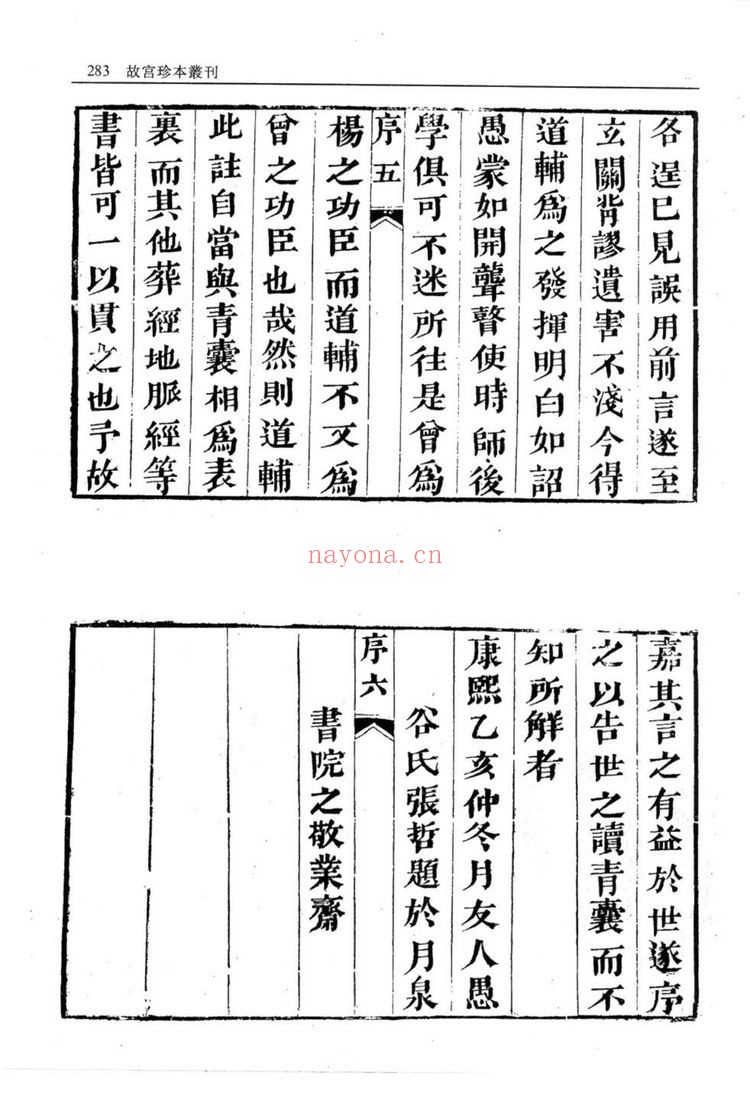 283 故宫珍本叢刊
各逞已見誤用前言遂至
玄關背謬遺害不淺今得
道輔爲之發揮明白如詔
愚蒙如開聾瞽使時師後
學俱可不迷所往是曾爲
序五
楊之功臣而道輔不又爲
曾之功臣也哉然則道輔
此註自當與青囊相爲表
裏而其他葬經地脈經等
書皆可一以貫之也予故
nayona.cn
嘉其言之有益於世遂序
之以告世之讀青囊而不
知所解者
康熙乙亥仲冬月友人愚
谷氏張哲題於月泉
序六
書院之敬業齋